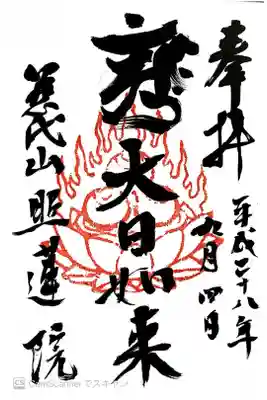 奉拝
平成二十八年
九月四日
大日如来
慈氏山照蓮院
CS CamScanner でスキャン